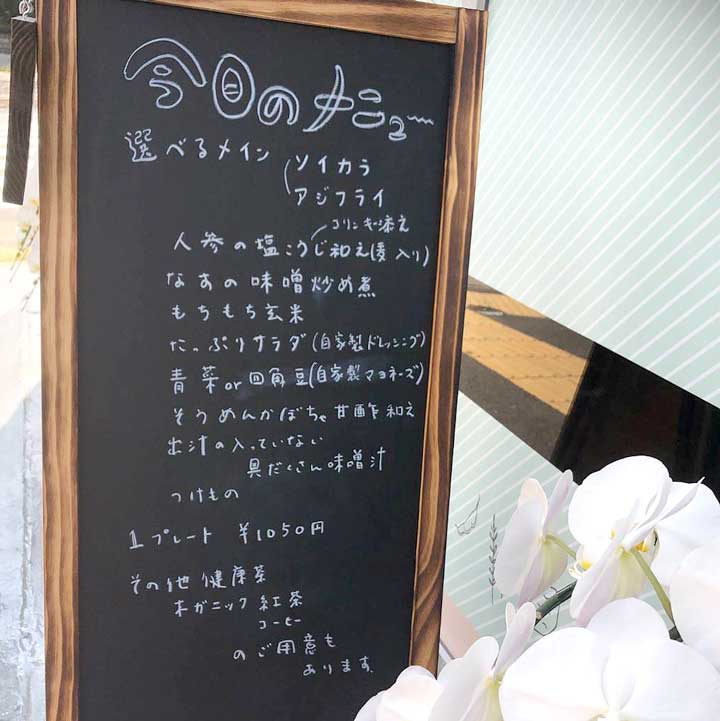 今日のメニュー
選べるメイン
ソイカラ
アジフライ
コリンキー添え
人参の塩こうじ和え(麦入り)
なすの味噌炒め煮
もちもち玄米
たっぷりサラダ(自家製ドレッシング)
青菜or四角豆(自家製マヨネーズ)
そうめんかぼちゃ甘酢和え
出汁の入っていない
具だくさん味噌汁
つけもの
1プレート ¥1050円
その他健康茶
オーガニック紅茶
コーヒー
のご用意も
あります。